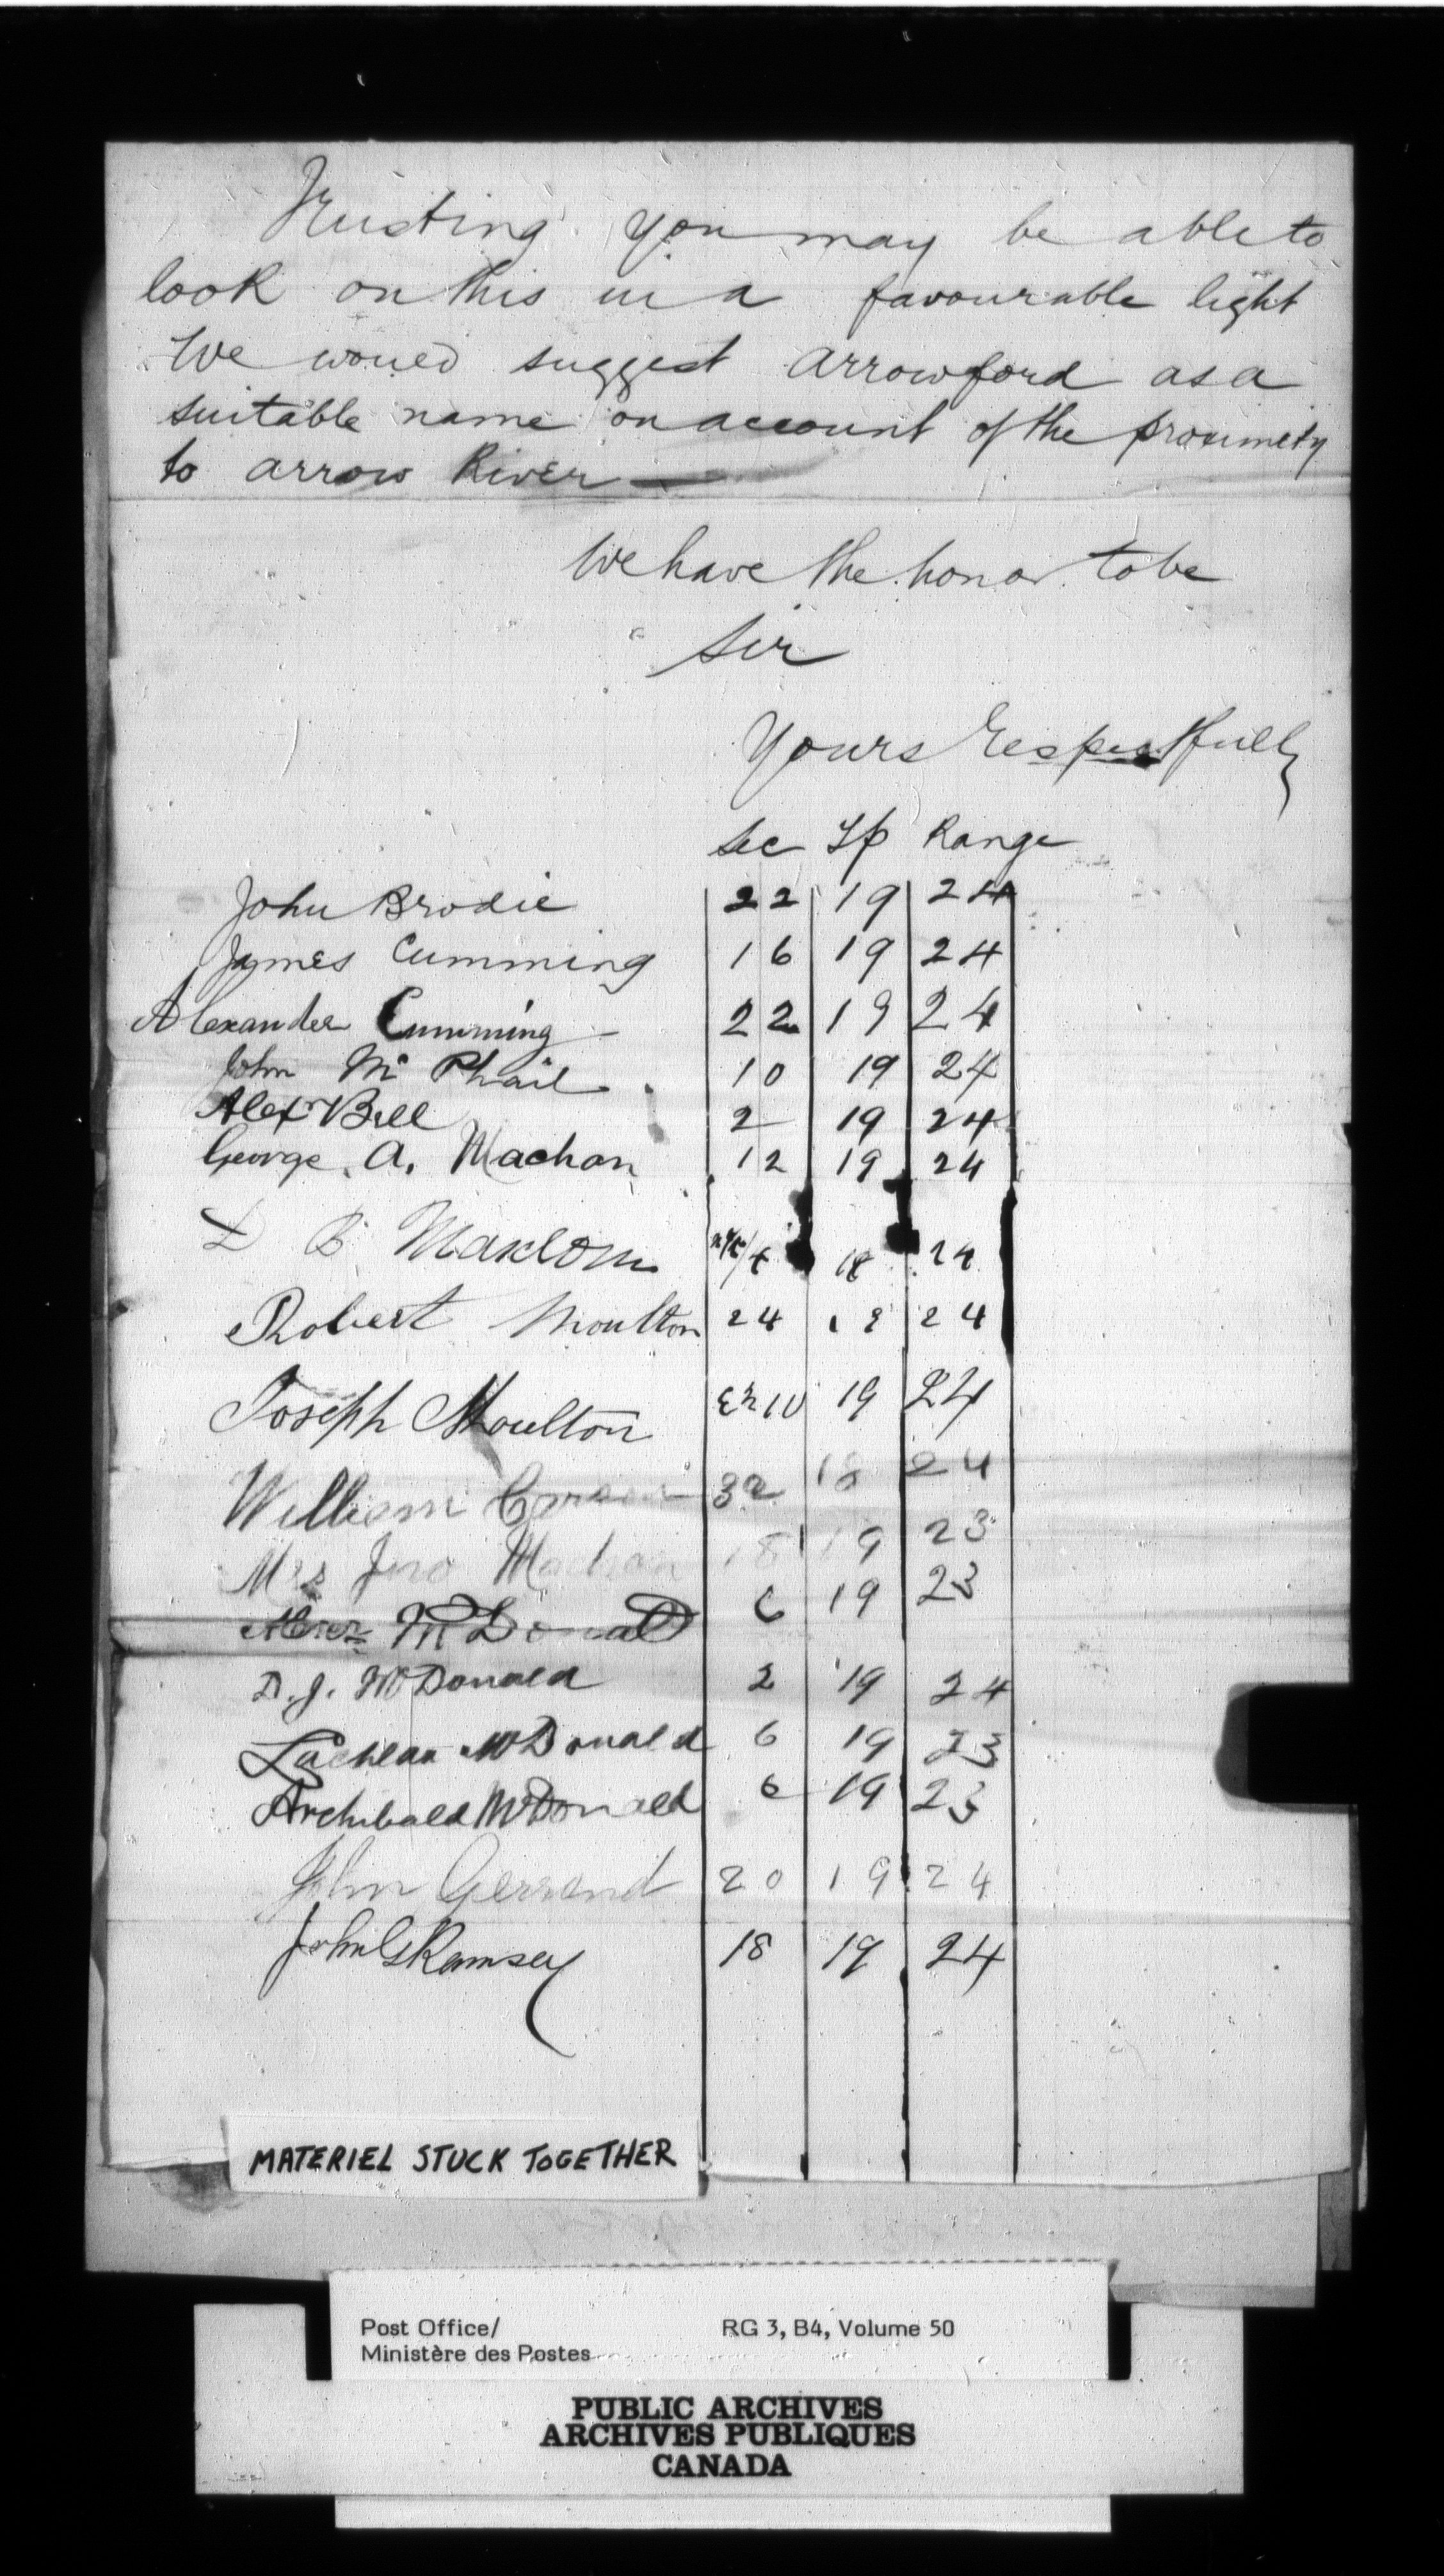 Trusting you may be able to
look on this in a favourable light
We would suggest Arrowford as a
suitable name on account of the proximity
to arrow River —
We have the honor to be
Sir
Yours Respectfully
Sec Tp Range
John Brodie 22 19 24
James Cumming 16 19 24
Alexander Cumming 22 19 24
John Mc Phail 10 19 24
Alexr Bell 2 19 24
George. A. Machan 12 19 24
D B 24
Robert Moulton 24 24
Joseph Moulton 19 24
William 32 18 24
Mrs Jno Machan 18 19 23
McDonald 6 19 23
D. J. McDonald 2 19 24
Lachlan McDonald 6 19 23
Archibald McDonald 6 19 23
John Gerrand 20 19 24
John G Ramsey 18 19 24
MATERIEL STUCK TOGETHER
Post Office/ RG 3, B4, Volume 50
Ministère des Postes
PUBLIC ARCHIVES
ARCHIVES PUBLIQUES
CANADA